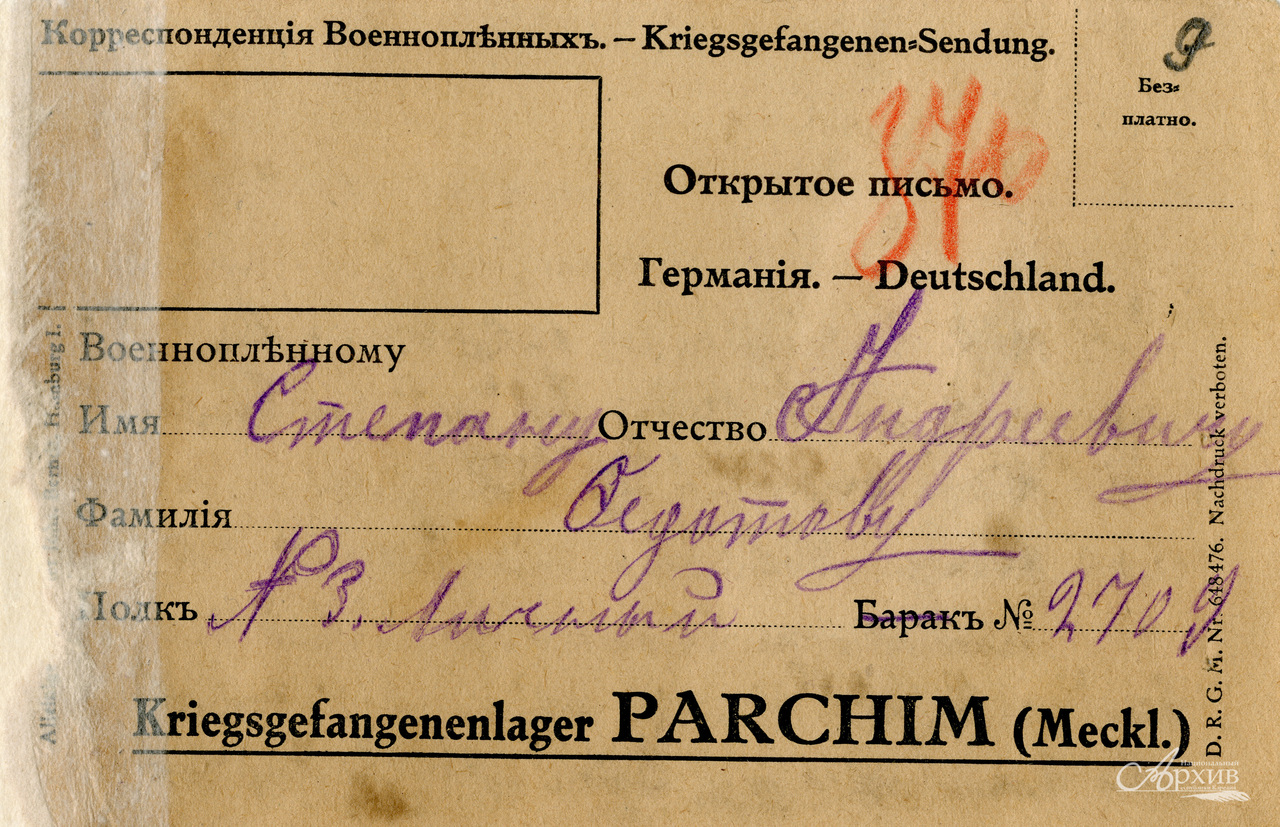 Корреспонденція Военноплѣнныхъ. – Kriegsgefangenen=Sendung.
9
Без=
платно.
Открытое письмо.
Германія. — Deutschland.
Военноплѣнному
Имя Степану Отчество Андреевичу
Фамилія Федотову
Полкъ 3. Личный Баракъ № 2709
Kriegsgefangenenlager PARCHIM (Meckl.)
D. R. G. M. Nr. 648476. Nachdruck verboten.
Национальный
Архив